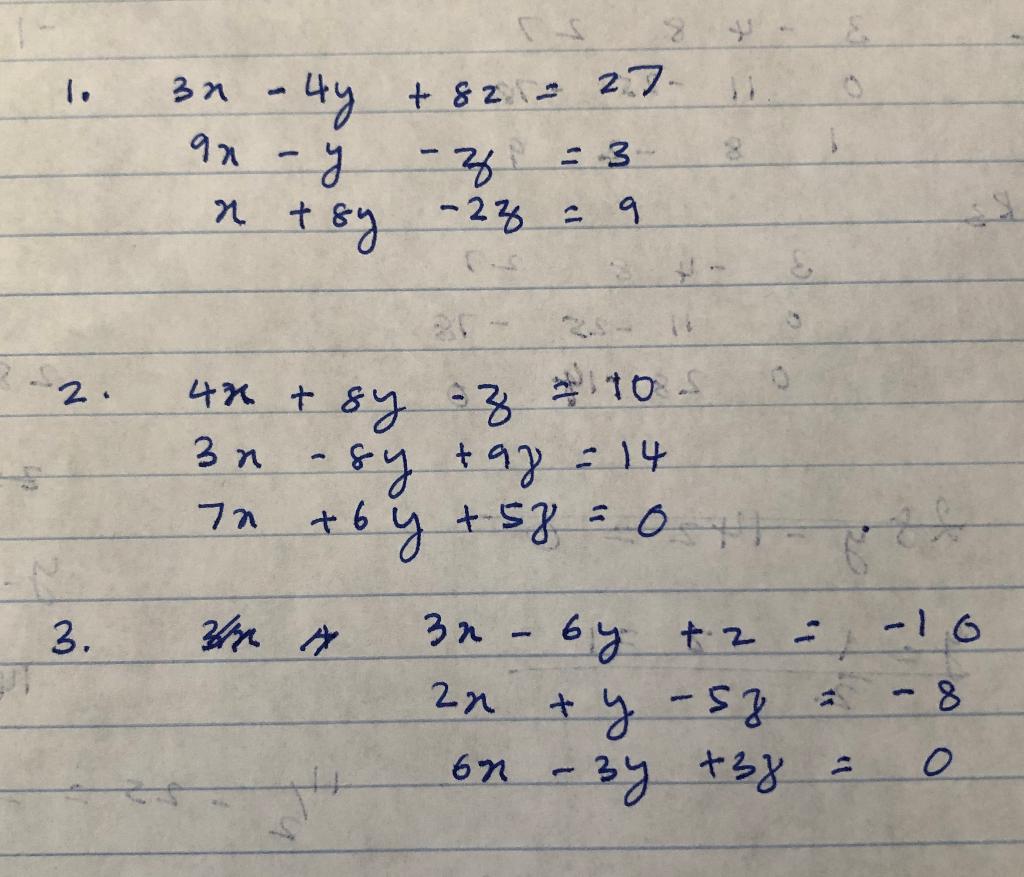 1. 3x - 4y + 8z = 27
9x - y - z = 3
x + 8y - 2z = 9
2. 4x + 8y - z = 10
3x - 8y + 9z = 14
7x + 6y + 5z = 0
3. 3x - 6y + z = -16
2x + y - 5z = -8
6x - 3y + 3z = 0